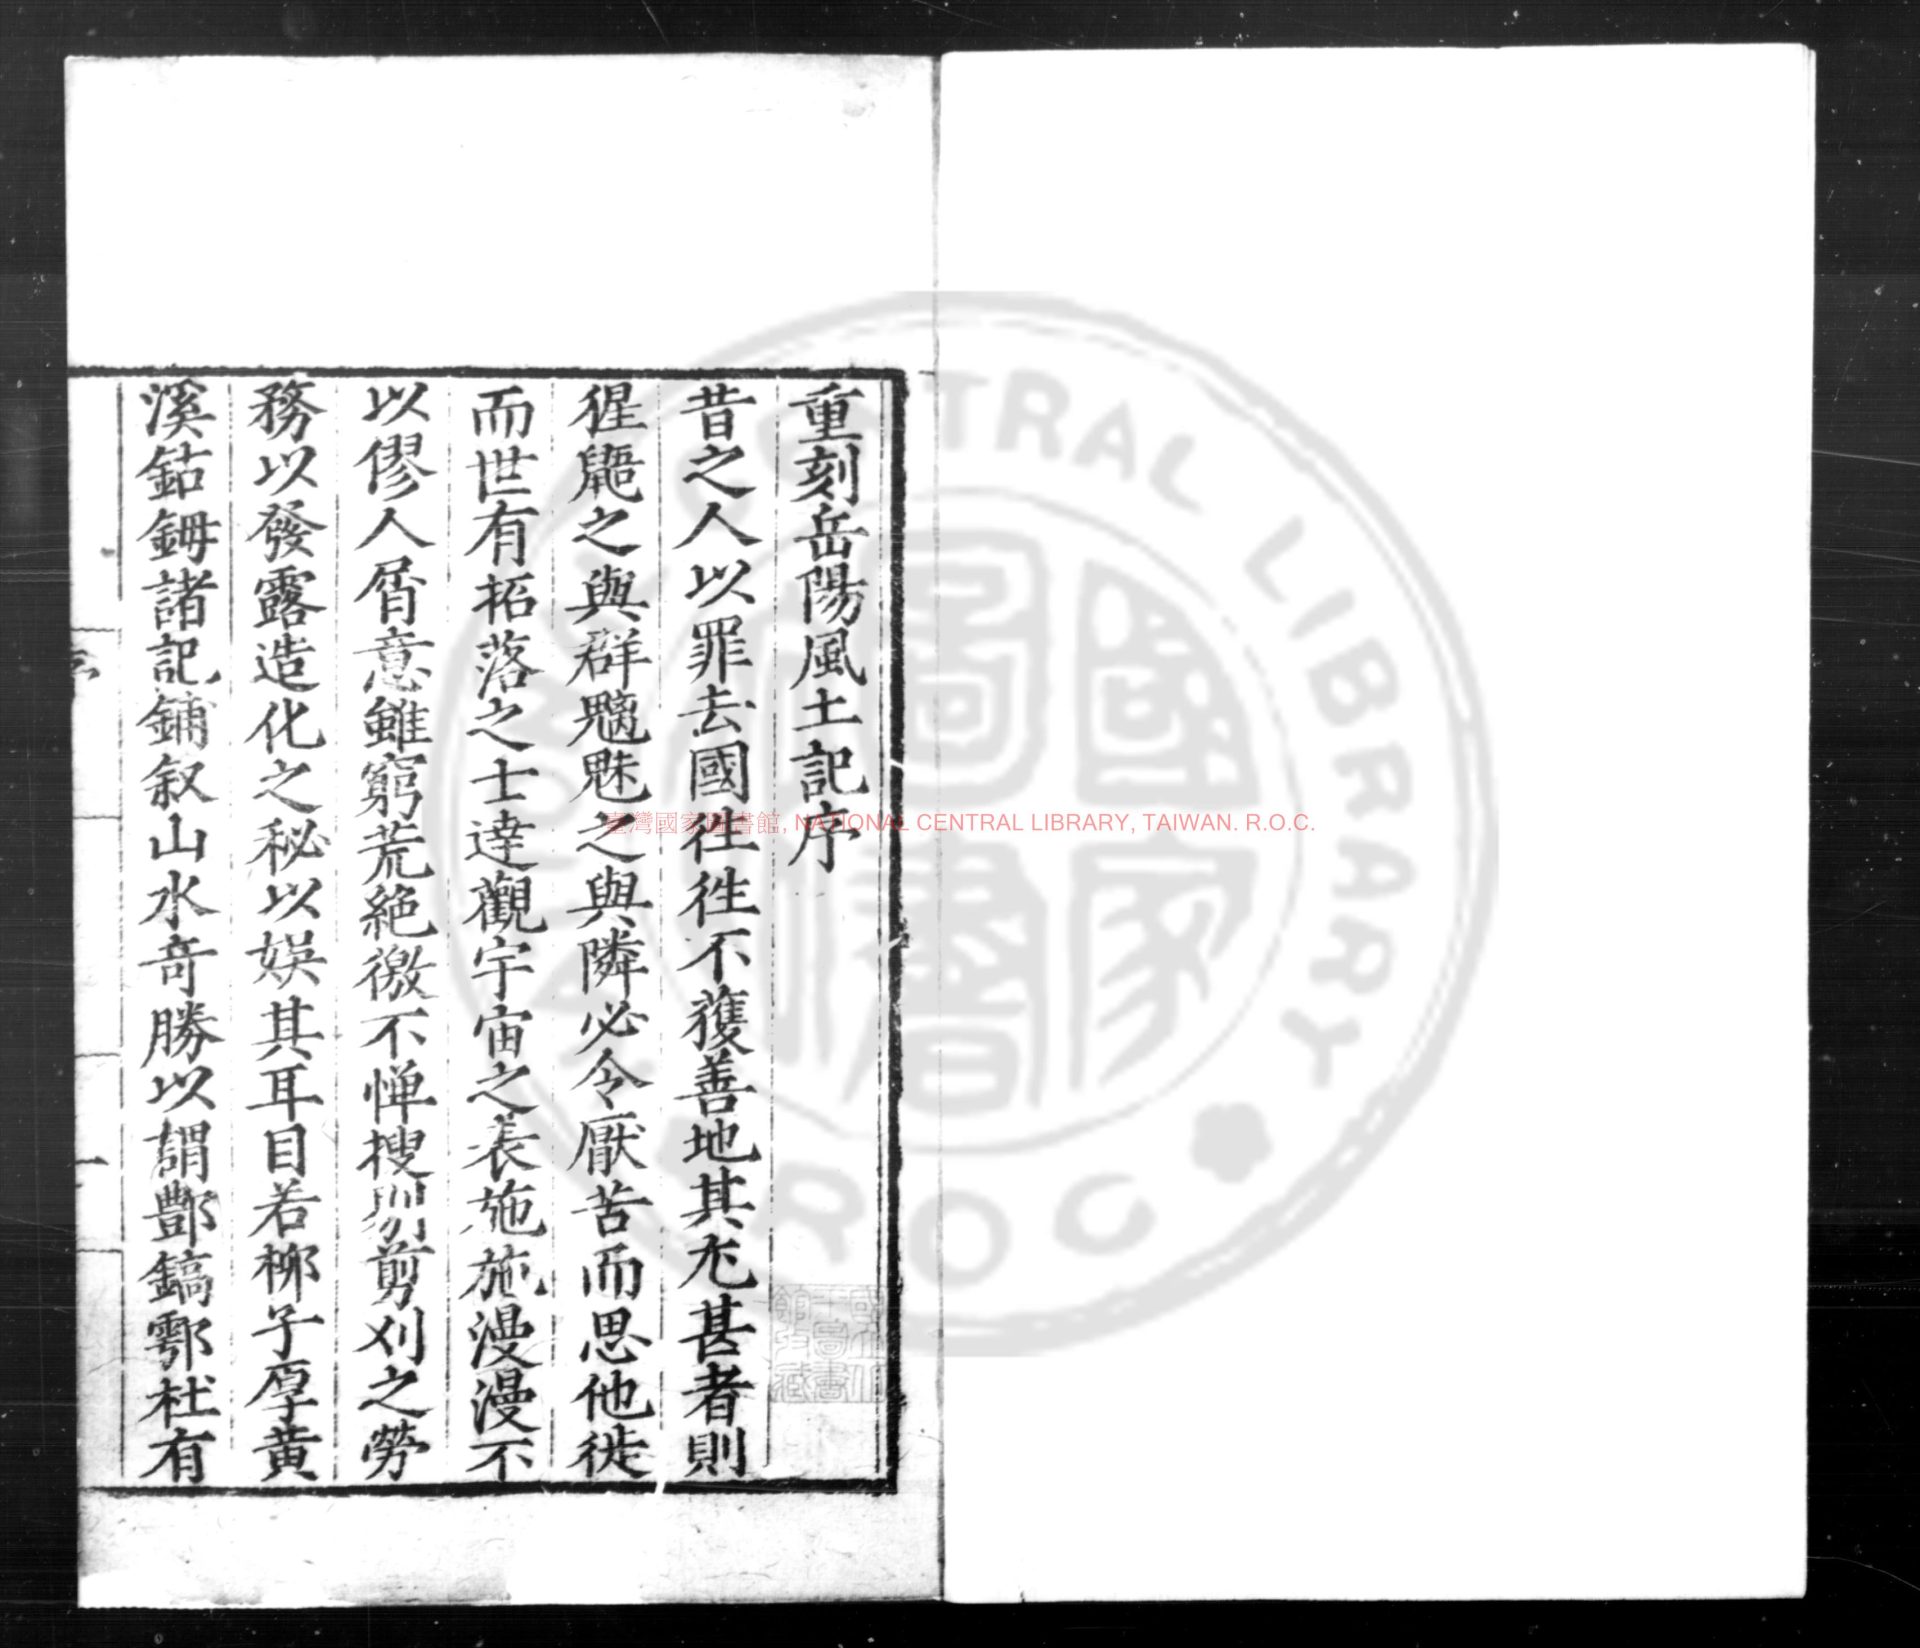 重刻岳陽風土記序
昔之人以罪去國徃徃不獲善地其尤甚者則
猩鼯之與群魑魅之與隣必令厭苦而思他徙
而世有拓落之士達觀宇宙之表施施漫漫不
以僇人屑意雖窮荒絶徼不憚搜剔剪刈之勞
務以發露造化之秘以娛其耳目若柳子厚黄
溪鈷鉧諸記鋪叙山水奇勝以謂酆鎬鄠杜有
臺灣國家圖書館, NATIONAL CENTRAL LIBRARY, TAIWAN. R.O.C.
國家圖書
NATIONAL CENTRAL LIBRARY R.O.C